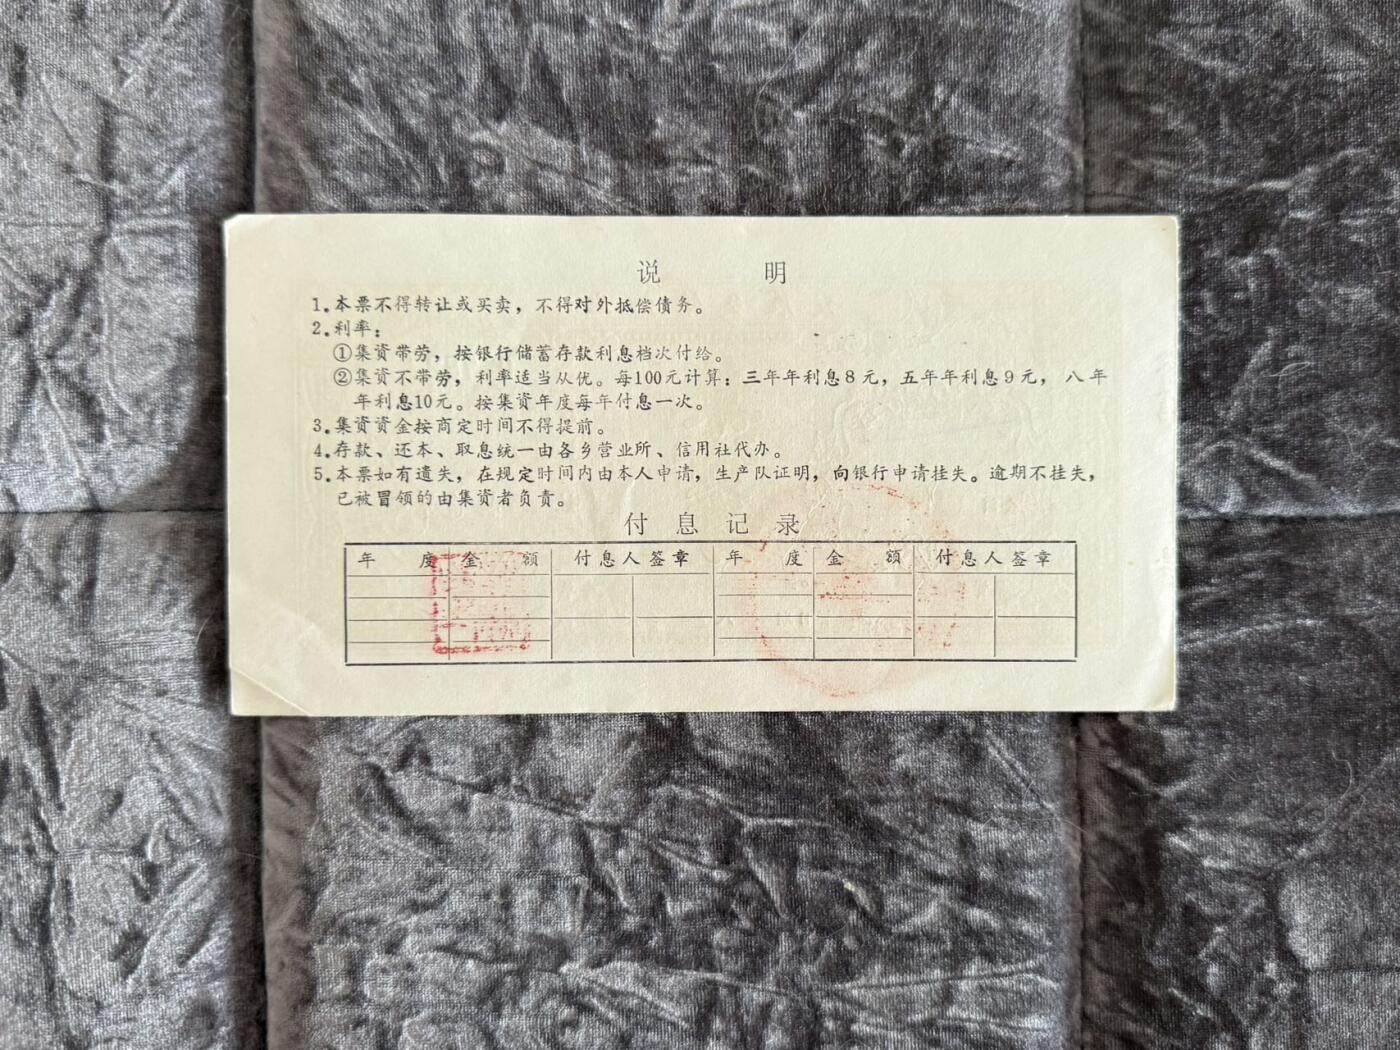 说 明
1.本票不得转让或买卖，不得对外抵偿债务。
2.利率：
①集资带劳，按银行储蓄存款利息档次付给。
②集资不带劳，利率适当从优。每100元计算：三年年利息8元，五年年利息9元，八年
年利息10元。按集资年度每年付息一次。
3.集资资金按商定时间不得提前。
4.存款、还本、取息统一由各乡营业所、信用社代办。
5.本票如有遗失，在规定时间内由本人申请，生产队证明，向银行申请挂失。逾期不挂失，
已被冒领的由集资者负责。
付息记录
年 度 金 额 付息人签章 年 度 金 额 付息人签章